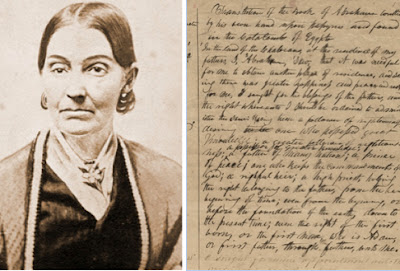 Translation of the Book of Abraham written
by his own hand upon papyrus and found
in the Catacombs of Egypt
In the land of the Chaldeans, at the residence of my
fathers, I, Abraham, saw that it was needful
for me to obtain another place of residence, and
there was greater happiness and peace and rest
for me, I sought for the blessings of the fathers, and
the right whereunto I should be ordained to administer
the same: Having been a follower of righteousness
desiring one who possessed great
knowledge
a father of many nations, a prince
of peace; and who keeps the commandments of
God; a rightful heir, a high priest, holding
the right belonging to the fathers, from the
beginning of time; even from the beginning, or
before the foundation of the earth, down to
the present time; even the right of the first
born, or the first man, who is Adam,
or first father, through the fathers, unto me.